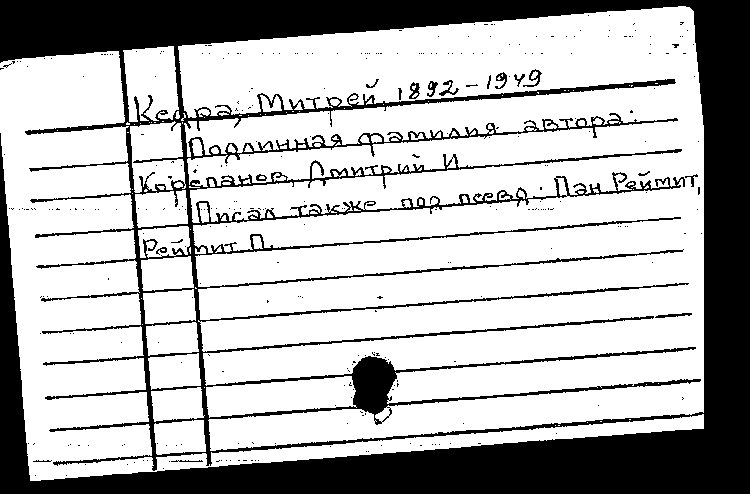 Кедра, Митрей, 1892-1949
Подлинная фамилия автора:
Корепанов, Дмитрий И.
Писал также под псевд.: Пан Реймит,
Реймит П.